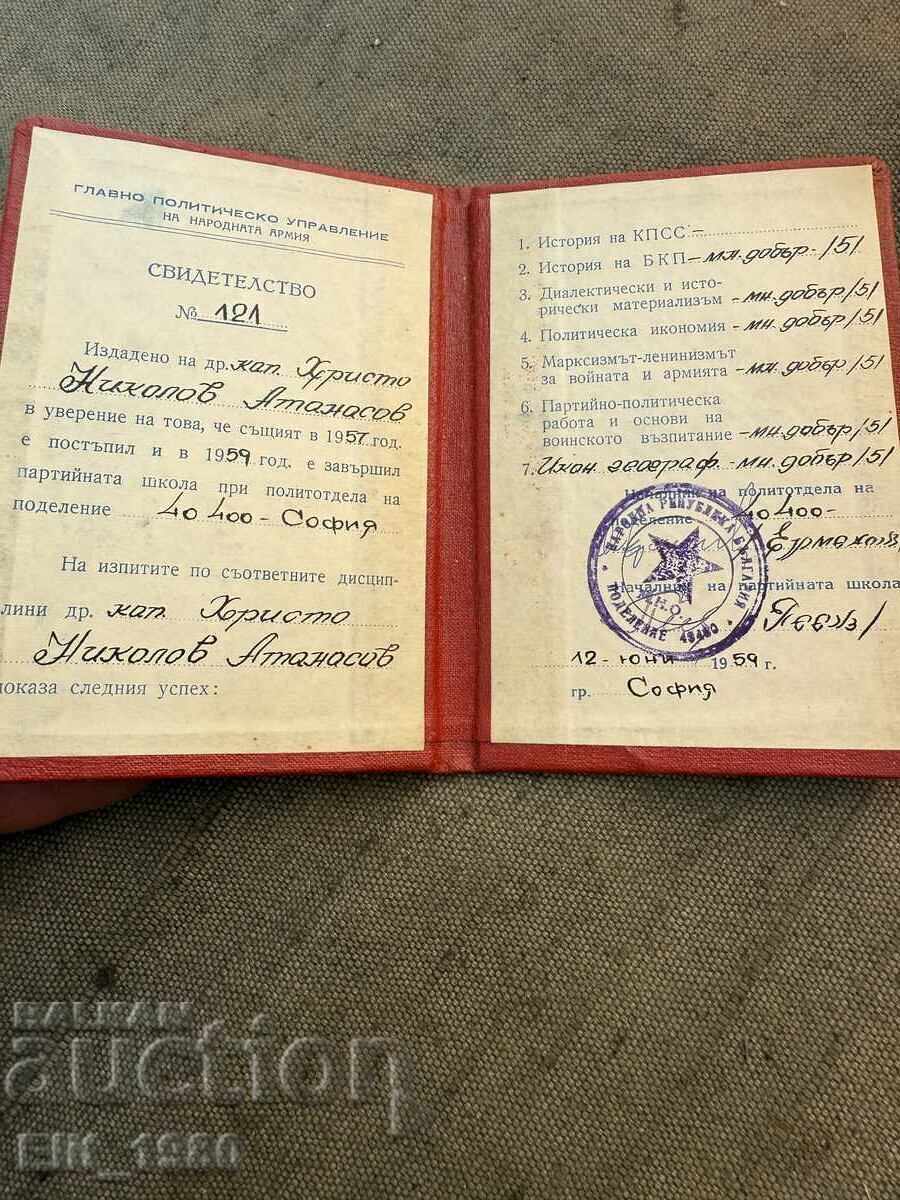 ГЛАВНО ПОЛИТИЧЕСКО УПРАВЛЕНИЕ
НА НАРОДНАТА АРМИЯ
СВИДЕТЕЛСТВО
№ 121
Издадено на др. кап. Христо
Николов Атанасов
в уверение на това, че същият в 1957 год.
е постъпил и в 1959 год. е завършил
партийната школа при политотдела на
поделение 40400 - София
На изпитите по съответните дисцип-
лини др. кап. Христо
Николов Атанасов
показа следния успех:
1. История на КПСС -
2. История на БКП - мн. добър /5/
3. Диалектически и исто-
рически материализъм - мн. добър /5/
4. Политическа икономия - мн. добър /5/
5. Марксизмът-ленинизмът
за войната и армията - мн. добър /5/
6. Партийно-политическа
работа и основи на
воинското възпитание - мн. добър /5/
7. Икон. географ. - мн. добър /5/
Началник на политотдела на
поделение 40400 -
Началник на партийната школа
НАРОДНА РЕПУБЛИКА БЪЛГАРИЯ
М.Н.О.
ПОДЕЛЕНИЕ
12 - юни 1959 г.
гр. София
BALKAN
auction
EIK_1980